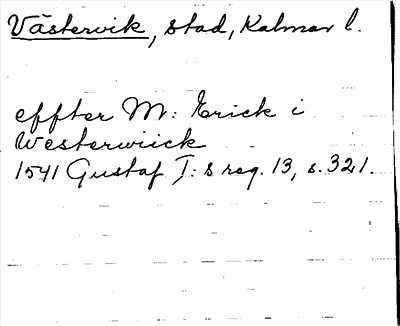 Västervik, stad, Kalmar l.
effter M: Erick i
Westerwiick
1541 Gustaf I:s reg. 13, s. 321.